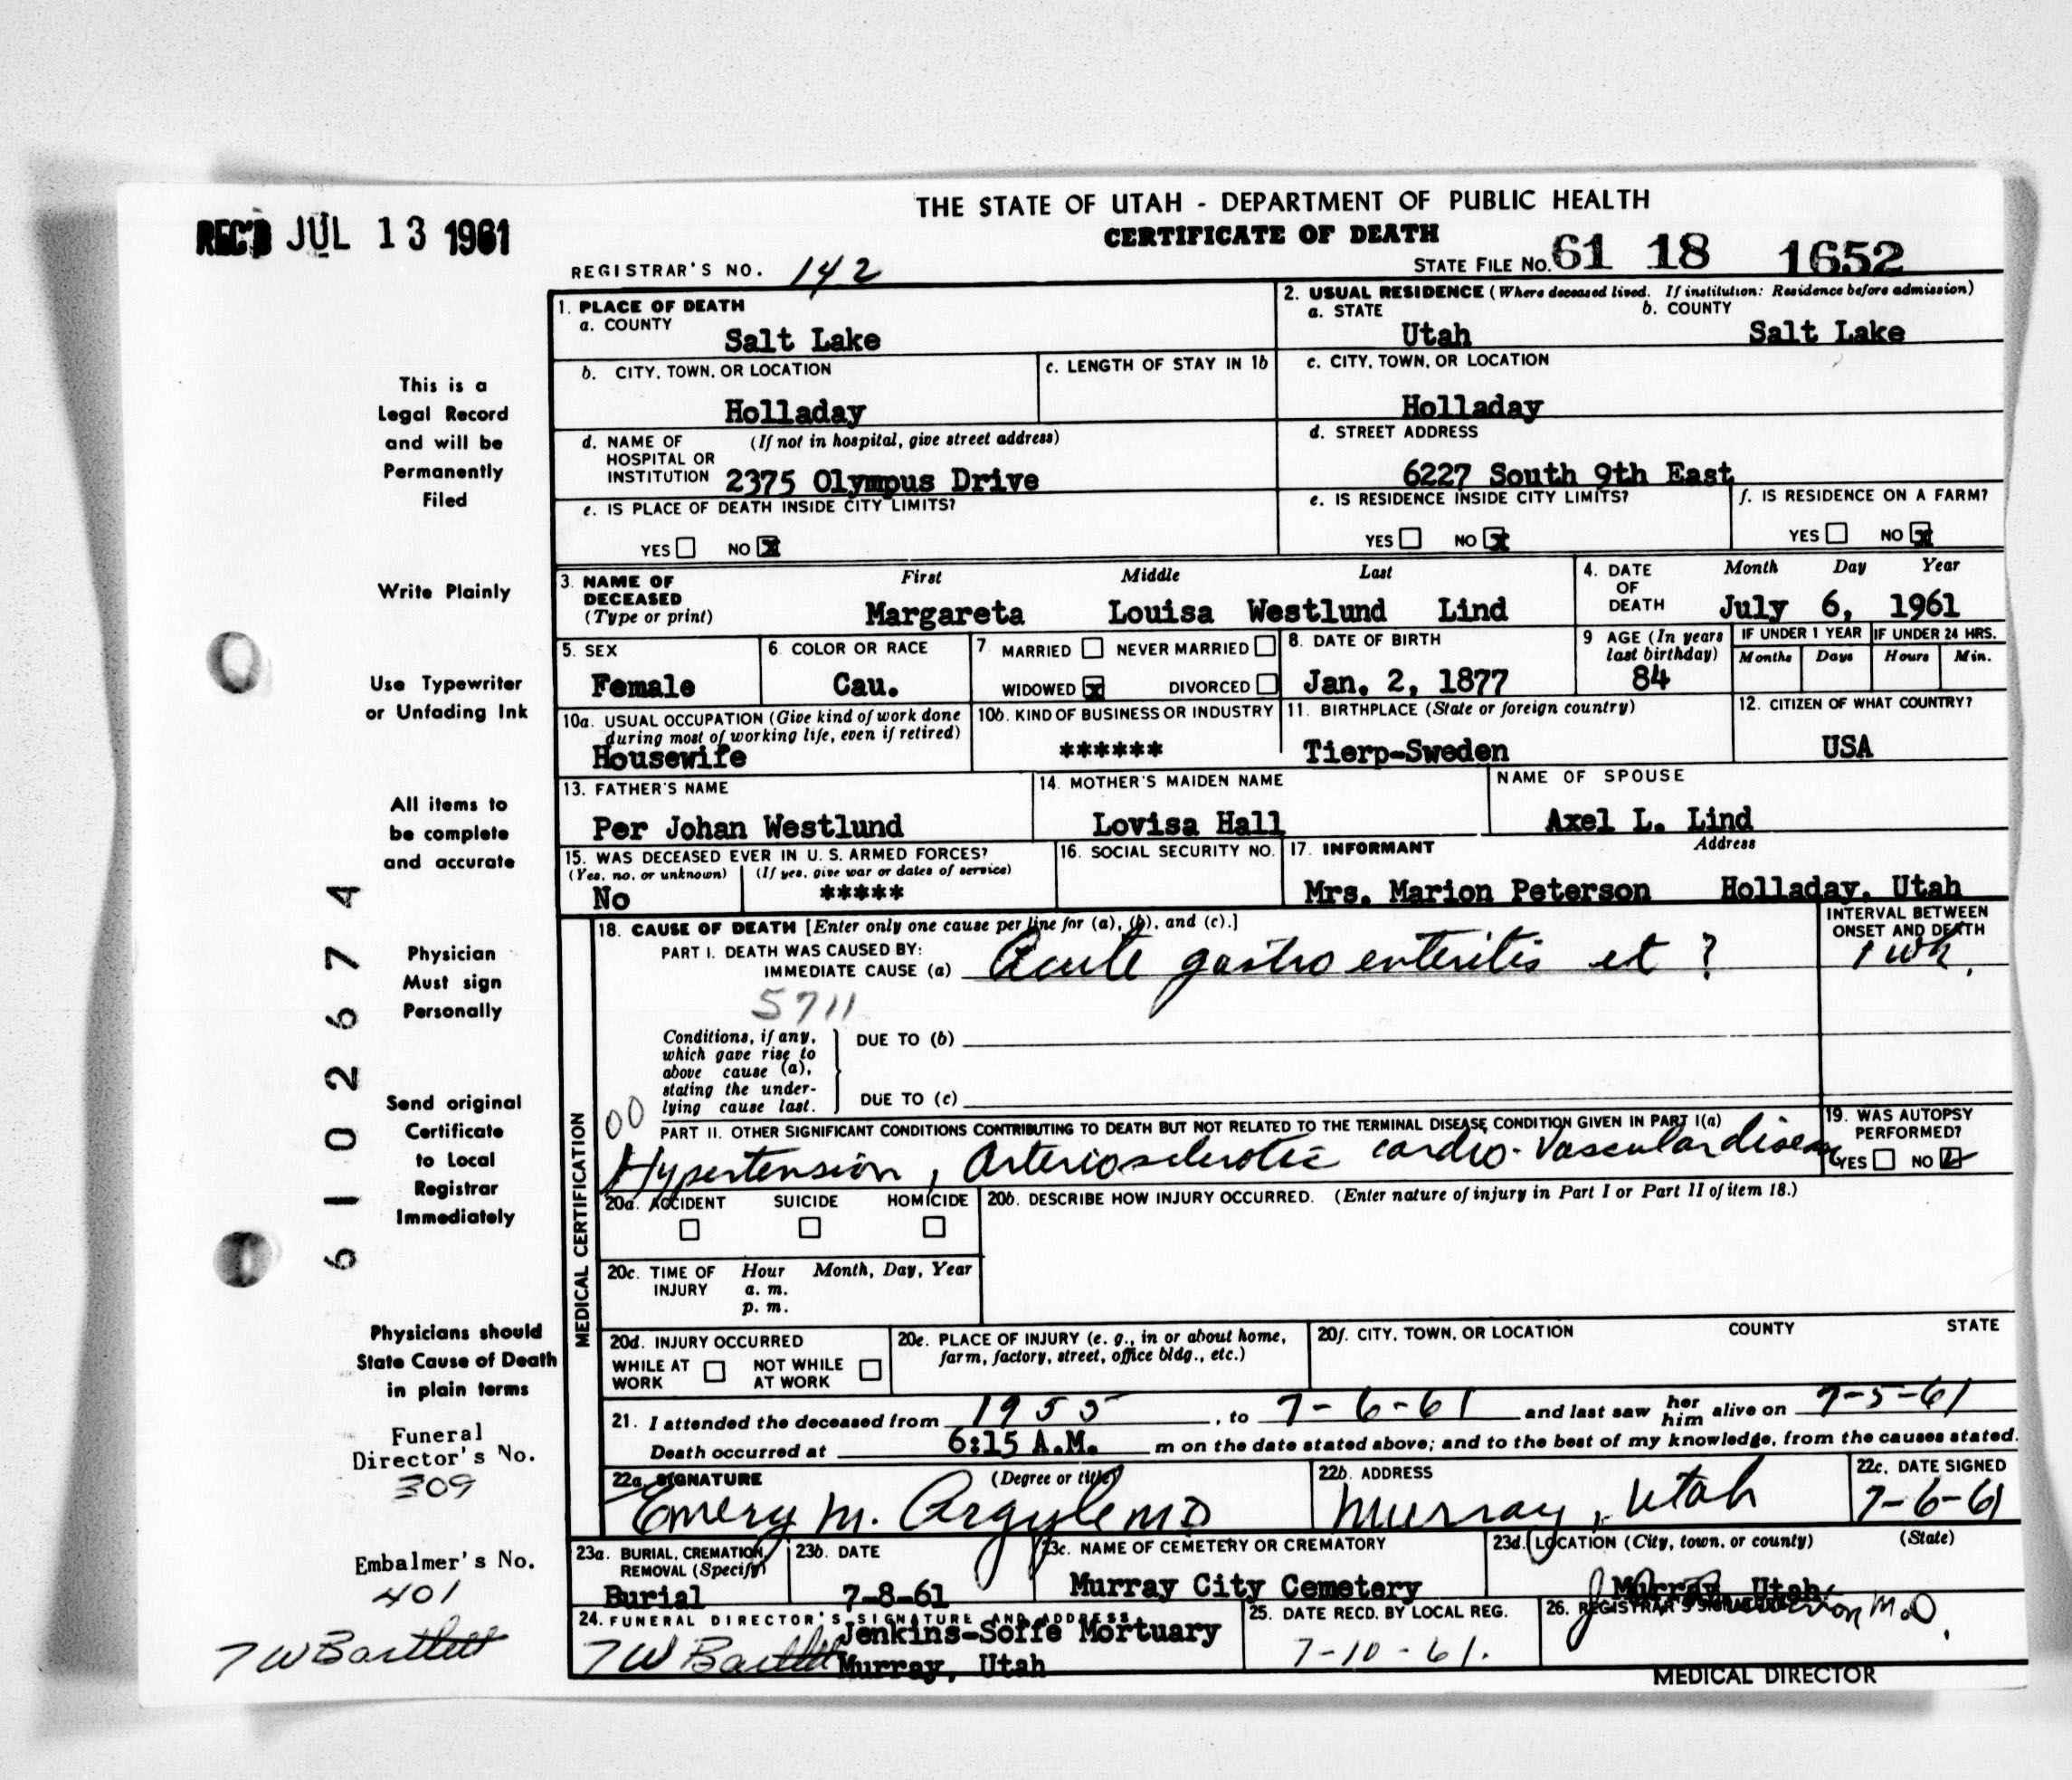 THE STATE OF UTAH - DEPARTMENT OF PUBLIC HEALTH
REC'D JUL 13 1961
CERTIFICATE OF DEATH
REGISTRAR'S NO. 142
STATE FILE NO. 61 18 1652
1. PLACE OF DEATH
a. COUNTY
Salt Lake
2. USUAL RESIDENCE (Where deceased lived. If institution: Residence before admission)
a. STATE b. COUNTY
Utah Salt Lake
b. CITY, TOWN, OR LOCATION
Holladay
c. LENGTH OF STAY IN 1b
c. CITY, TOWN, OR LOCATION
Holladay
d. NAME OF (If not in hospital, give street address)
HOSPITAL OR
INSTITUTION 2375 Olympus Drive
d. STREET ADDRESS
6227 South 9th East
e. IS PLACE OF DEATH INSIDE CITY LIMITS?
YES NO x
e. IS RESIDENCE INSIDE CITY LIMITS?
YES NO x
f. IS RESIDENCE ON A FARM?
YES NO x
3. NAME OF First Middle Last
DECEASED
(Type or print) Margareta Louisa Westlund Lind
4. DATE Month Day Year
OF
DEATH July 6, 1961
5. SEX
Female
6. COLOR OR RACE
Cau.
7. MARRIED NEVER MARRIED
WIDOWED x DIVORCED
8. DATE OF BIRTH
Jan. 2, 1877
9 AGE (In years
last birthday)
84
IF UNDER 1 YEAR
Months Days
IF UNDER 24 HRS.
Hours Min.
10a. USUAL OCCUPATION (Give kind of work done
during most of working life, even if retired)
Housewife
10b. KIND OF BUSINESS OR INDUSTRY
******
11. BIRTHPLACE (State or foreign country)
Tierp-Sweden
12. CITIZEN OF WHAT COUNTRY?
USA
13. FATHER'S NAME
Per Johan Westlund
14. MOTHER'S MAIDEN NAME
Lovisa Hall
NAME OF SPOUSE
Axel L. Lind
15. WAS DECEASED EVER IN U. S. ARMED FORCES?
(Yes, no, or unknown) (If yes, give war or dates of service)
No *****
16. SOCIAL SECURITY NO.
17. INFORMANT Address
Mrs. Marion Peterson Holladay, Utah
18. CAUSE OF DEATH [Enter only one cause per line for (a), (b), and (c).]
PART I. DEATH WAS CAUSED BY:
IMMEDIATE CAUSE (a) Acute gastro enteritis et ?
INTERVAL BETWEEN
ONSET AND DEATH
1 wk.
5711
Conditions, if any,
which gave rise to
above cause (a),
stating the under-
lying cause last.
DUE TO (b)
DUE TO (c)
00
PART II. OTHER SIGNIFICANT CONDITIONS CONTRIBUTING TO DEATH BUT NOT RELATED TO THE TERMINAL DISEASE CONDITION GIVEN IN PART I(a)
Hypertension, Arteriosclerotic cardio-vascular disease
19. WAS AUTOPSY
PERFORMED?
YES NO
MEDICAL CERTIFICATION
20a. ACCIDENT SUICIDE HOMICIDE
20b. DESCRIBE HOW INJURY OCCURRED. (Enter nature of injury in Part I or Part II of item 18.)
20c. TIME OF Hour Month, Day, Year
INJURY a. m.
p. m.
20d. INJURY OCCURRED
WHILE AT NOT WHILE
WORK AT WORK
20e. PLACE OF INJURY (e. g., in or about home,
farm, factory, street, office bldg., etc.)
20f. CITY, TOWN, OR LOCATION COUNTY STATE
21. I attended the deceased from 1955, to 7-6-61 and last saw her him alive on 7-5-61
Death occurred at 6:15 A.M. m on the date stated above; and to the best of my knowledge, from the causes stated.
22a. SIGNATURE (Degree or title)
Emery M. Argyle MD
22b. ADDRESS
Murray, Utah
22c. DATE SIGNED
7-6-61
23a. BURIAL, CREMATION,
REMOVAL (Specify)
Burial
23b. DATE
7-8-61
23c. NAME OF CEMETERY OR CREMATORY
Murray City Cemetery
23d. LOCATION (City, town, or county) (State)
Murray, Utah
24. FUNERAL DIRECTOR'S SIGNATURE AND ADDRESS
Jenkins-Soffe Mortuary
TW Bartlett Murray, Utah
25. DATE RECD. BY LOCAL REG.
7-10-61.
26. REGISTRAR'S SIGNATURE
M.D.
MEDICAL DIRECTOR
This is a
Legal Record
and will be
Permanently
Filed
Write Plainly
Use Typewriter
or Unfading Ink
All items to
be complete
and accurate
Physician
Must sign
Personally
Send original
Certificate
to Local
Registrar
Immediately
Physicians should
State Cause of Death
in plain terms
Funeral
Director's No.
309
Embalmer's No.
401
TW Bartlett
61026774